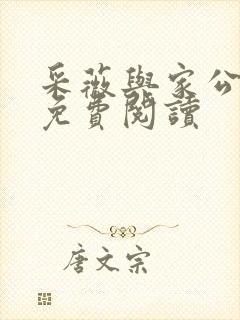 采薇與家公
免費閱讀
唐文宗